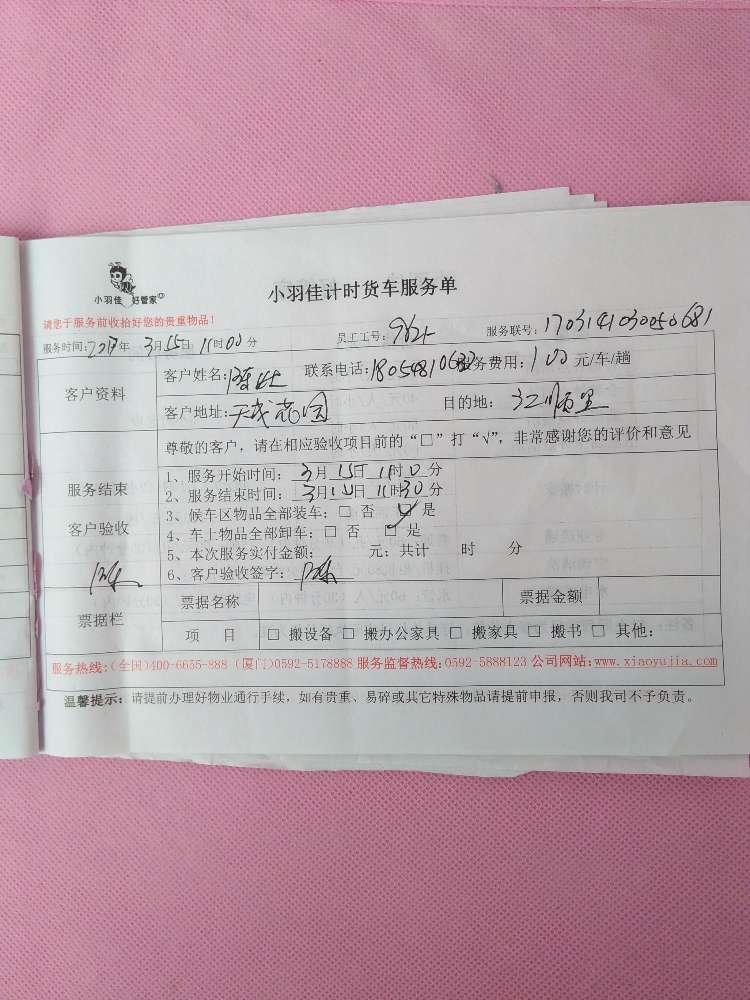 小羽佳 好管家
小羽佳计时货车服务单
请您于服务前收拾好您的贵重物品!
服务时间:2017年 3月15日 11时00分 员工工号: 服务联号:1703141030050681
客户资料
客户姓名:陈 联系电话: 服务费用:100元/车/趟
客户地址:天成花园 目的地:
尊敬的客户,请在相应验收项目前的“□”打“√”,非常感谢您的评价和意见
服务结束
客户验收
1、服务开始时间:3月15日11时0分
2、服务结束时间:3月15日11时30分
3、候车区物品全部装车:□ 否 □ 是
4、车上物品全部卸车:□ 否 □ 是
5、本次服务实付金额: 元;共计 时 分
6、客户验收签字:陈
票据栏
票据名称 票据金额
项 目 □ 搬设备 □ 搬办公家具 □ 搬家具 □ 搬书 □ 其他:
服务热线:(全国)400-6655-888 (厦门)0592-5178888 服务监督热线:0592-5888123 公司网站:www.xiaoyujia.com
温馨提示:请提前办理好物业通行手续,如有贵重、易碎或其它特殊物品请提前申报,否则我司不予负责。